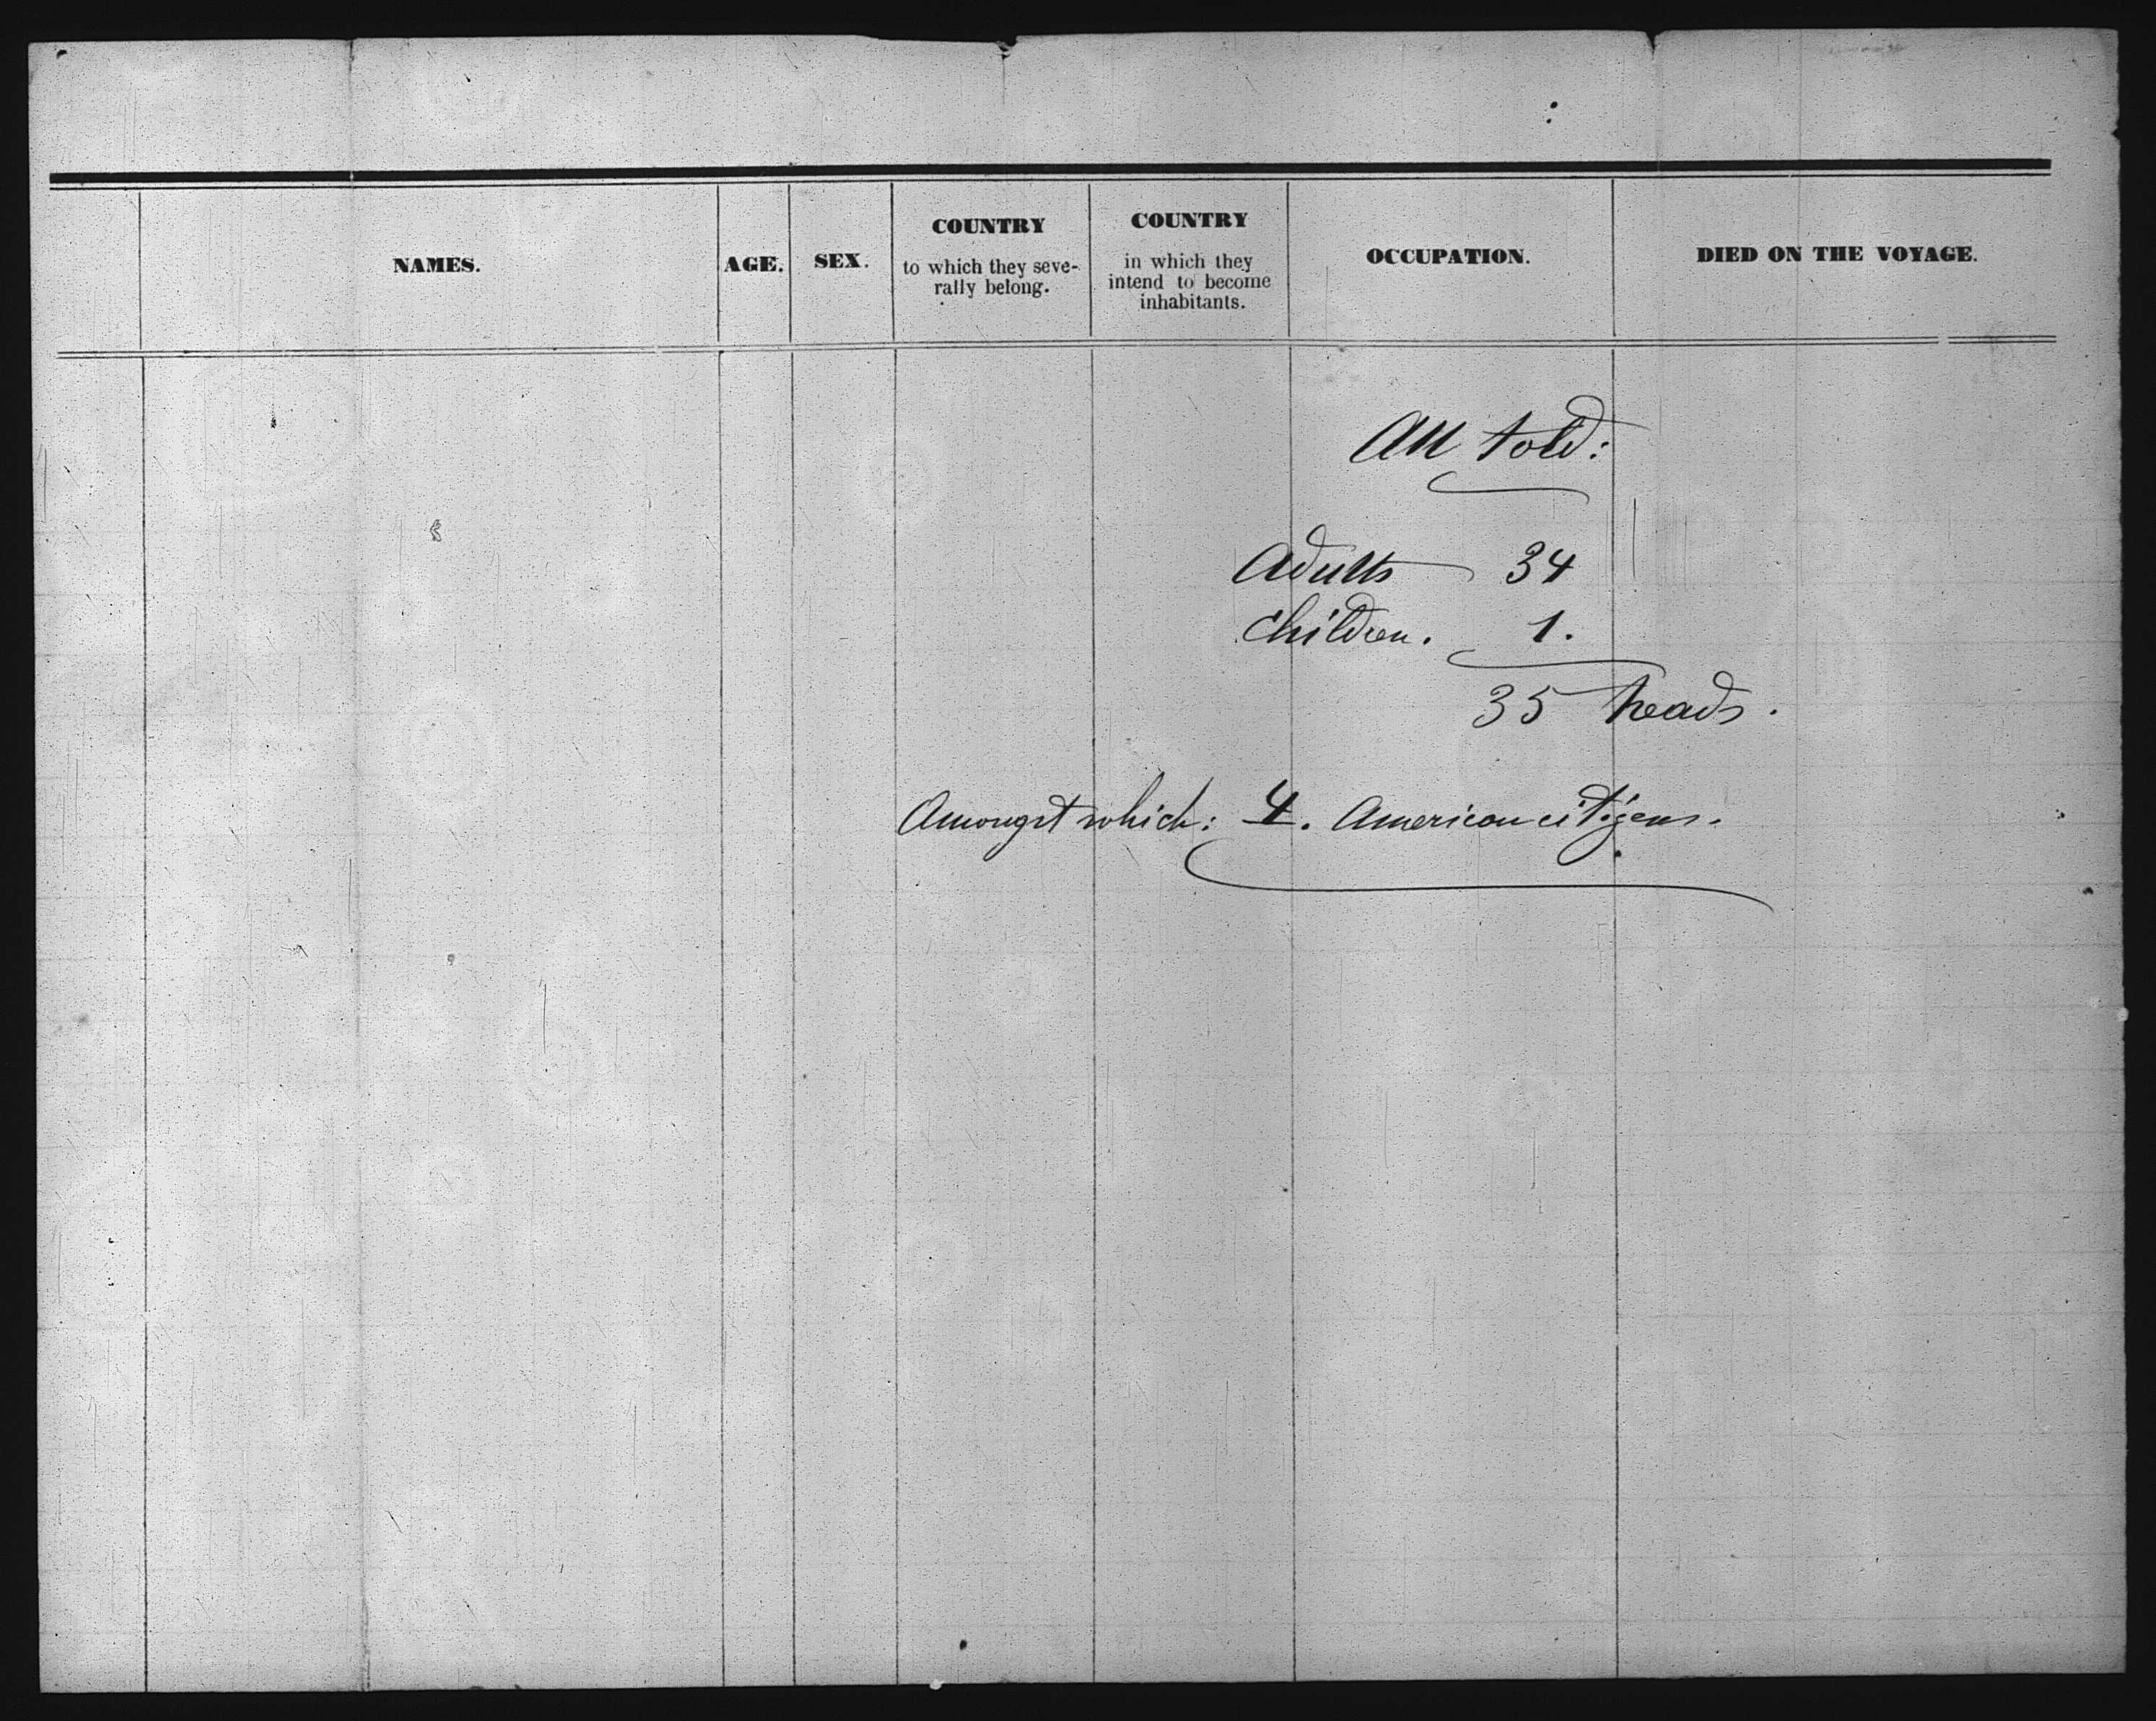 NAMES.
AGE.
SEX.
COUNTRY
to which they seve-
rally belong.
COUNTRY
in which they
intend to become
inhabitants.
OCCUPATION.
DIED ON THE VOYAGE.
All told:
Adults 34
Children. 1.
35 heads.
Amongst which: 4. American citizens.